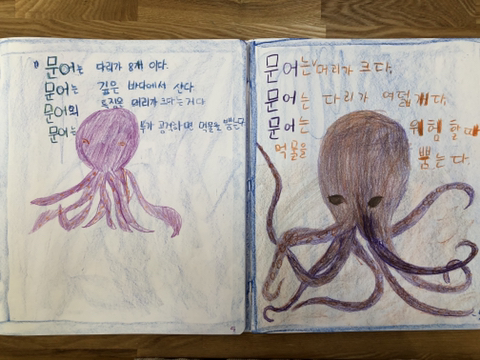 문어는 다리가 8개 이다.
문어는 깊은 바다에서 산다.
문어의 특징은 머리가 크다는 거다
문어는 누가 공격하면 먹물을 뿜는다
문어는 머리가 크다.
문어는 다리가 여덟개다.
문어는 위험할때
먹물을 뿜는다.